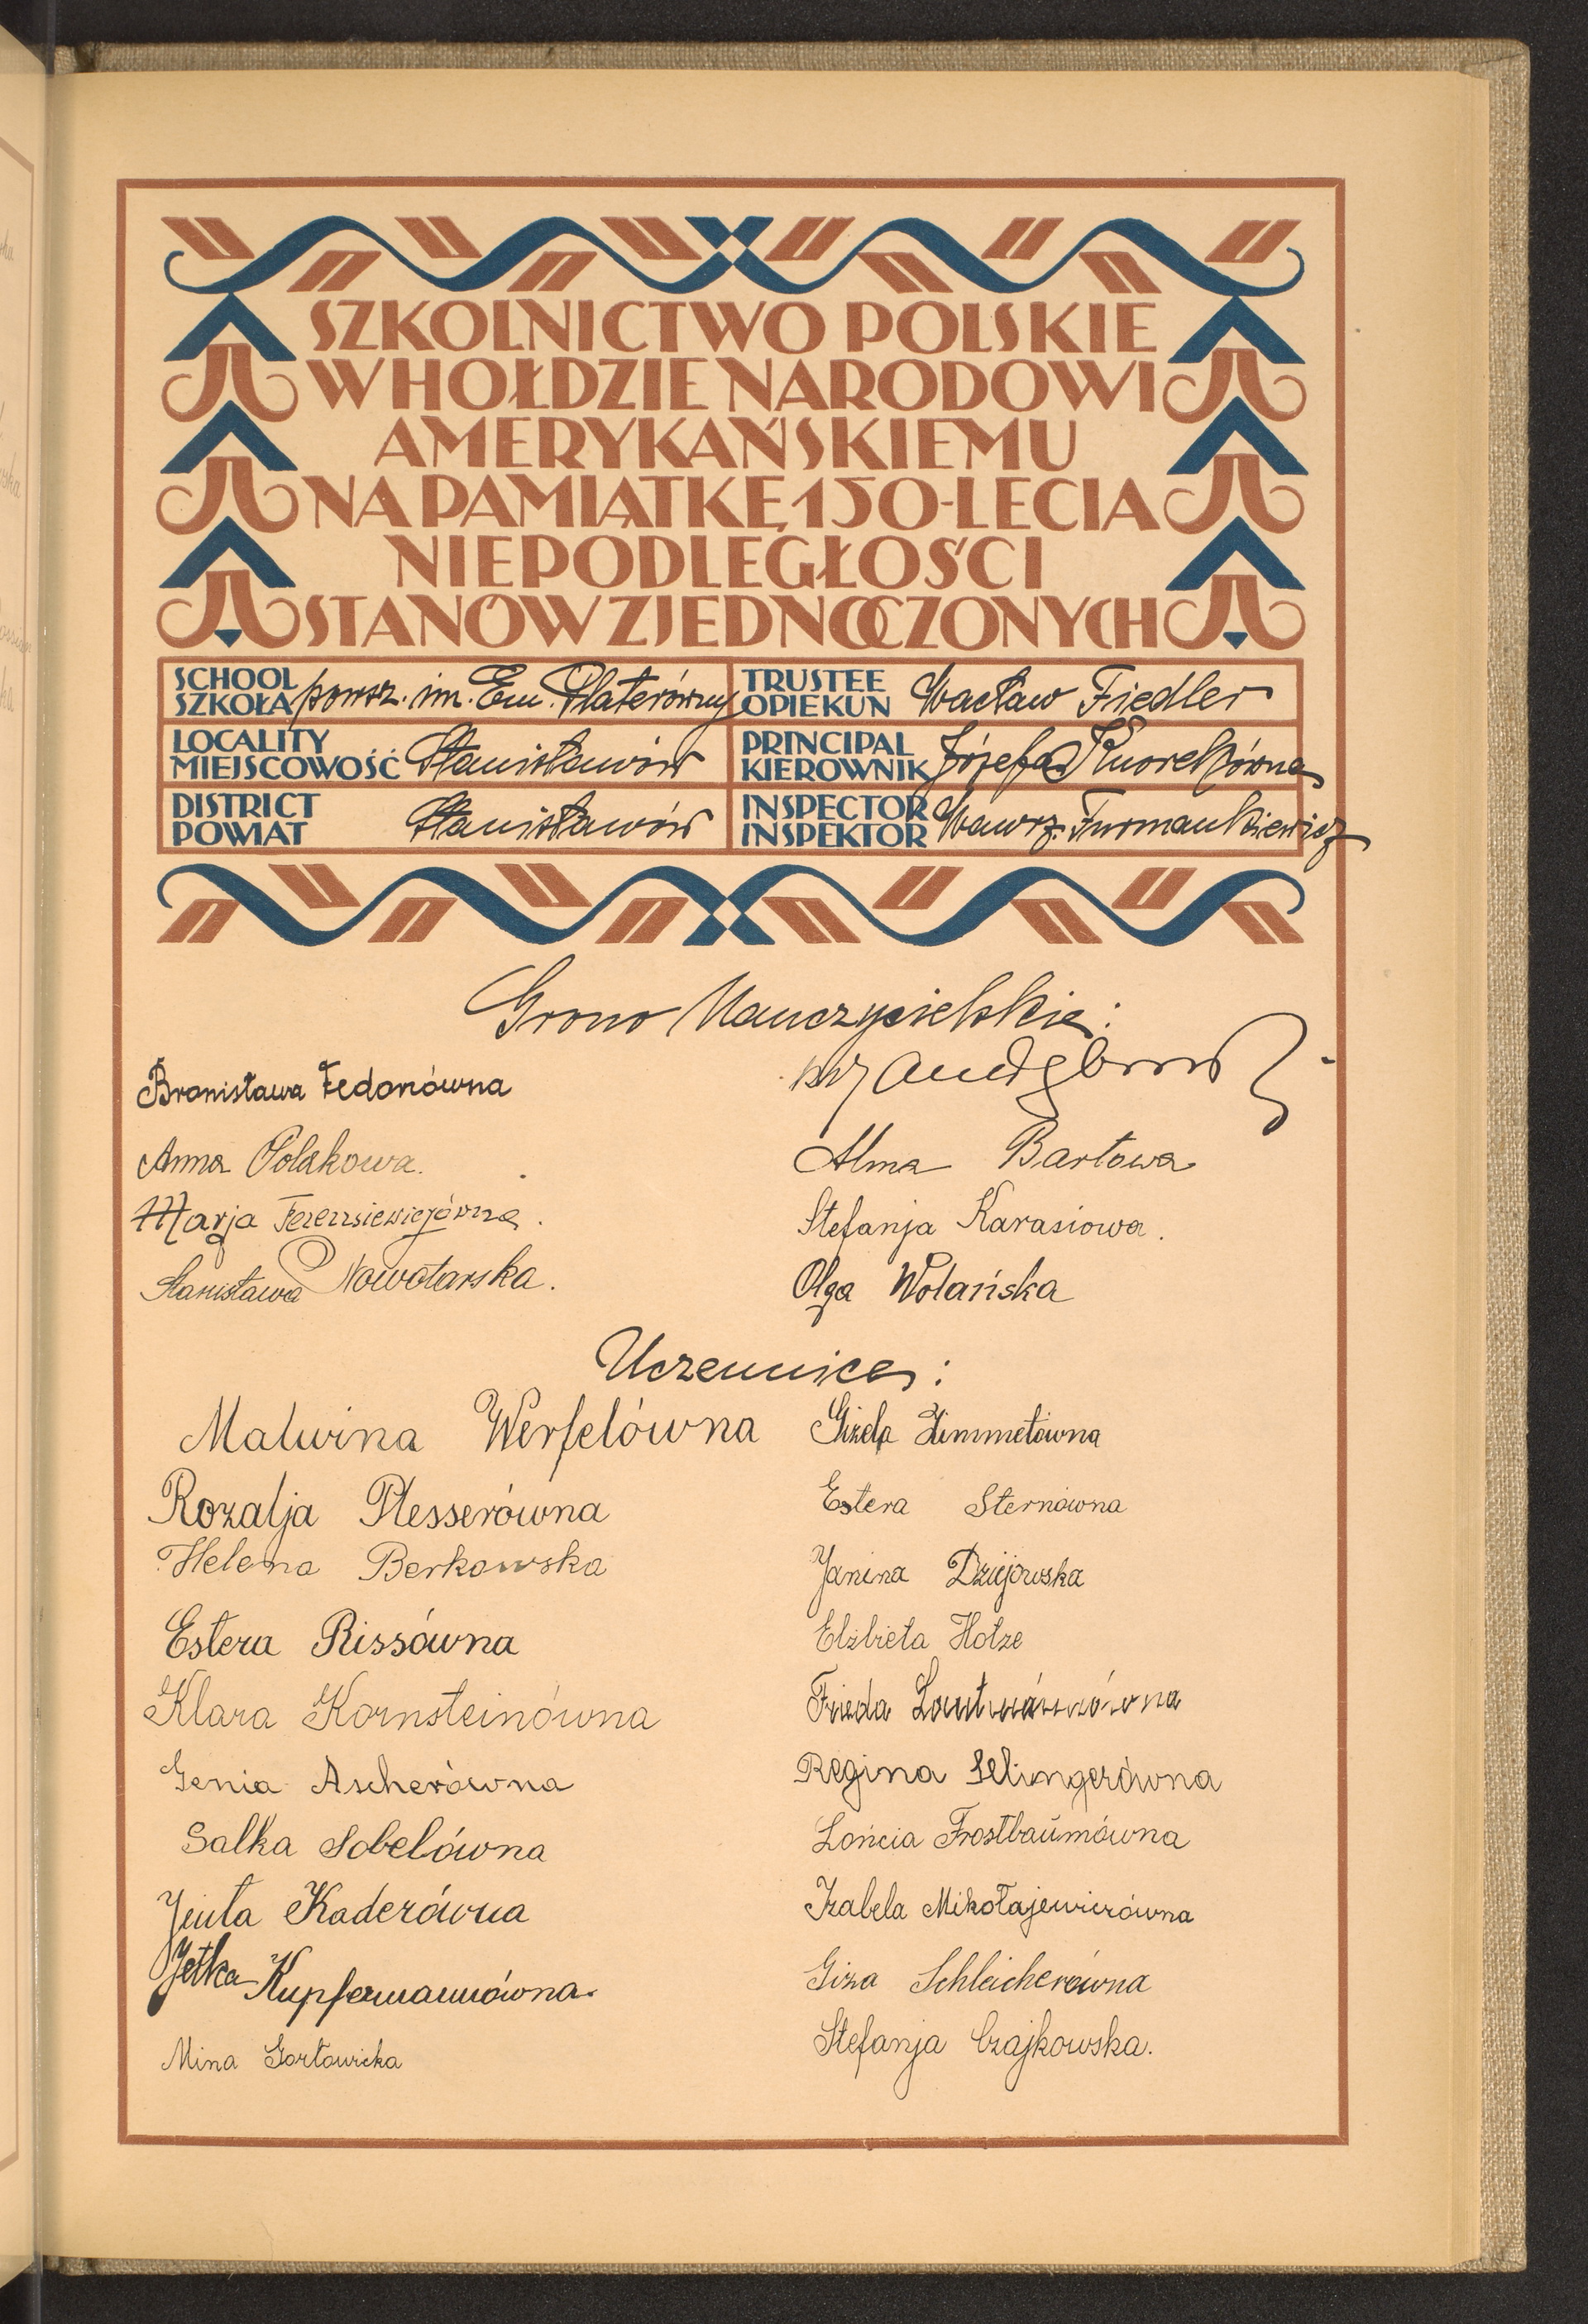 SZKOLNICTWO POLSKIE
W HOŁDZIE NARODOWI
AMERYKAŃSKIEMU
NA PAMIĄTKĘ 150-LECIA
NIEPODLEGŁOŚCI
STANÓW ZJEDNOCZONYCH
SCHOOL
SZKOŁA powsz. im. Em. Platerówny
TRUSTEE
OPIEKUN Wacław Fiedler
LOCALITY
MIEJSCOWOŚĆ Stanisławów
PRINCIPAL
KIEROWNIK Józefa
DISTRICT
POWIAT Stanisławów
INSPECTOR
INSPEKTOR Wawrz. Furmankiewicz
Grono Nauczycielskie:
Bronisława Fedonówna
Anna Polakowa.
Marja
Stanisława Nowotarska.
Alma Bartowa
Stefanja Karasiowa.
Olga Wolańska
Uczennice:
Malwina Werfelówna
Rozalja Plesserówna
Helena Berkowska
Estera Rissówna
Klara Kornsteinówna
Genia Ascherówna
Salka Sobelówna
Jenta Kaderówna
Jetka Kupfermannówna.
Mina
Gizela Himmelówna
Estera Sternówna
Janina
Elżbieta Hotze
Frieda
Regina Selingerówna
Lońcia Frostbaumówna
Izabela Mikołajewiczówna
Giza Schleicherówna
Stefanja Czajkowska.